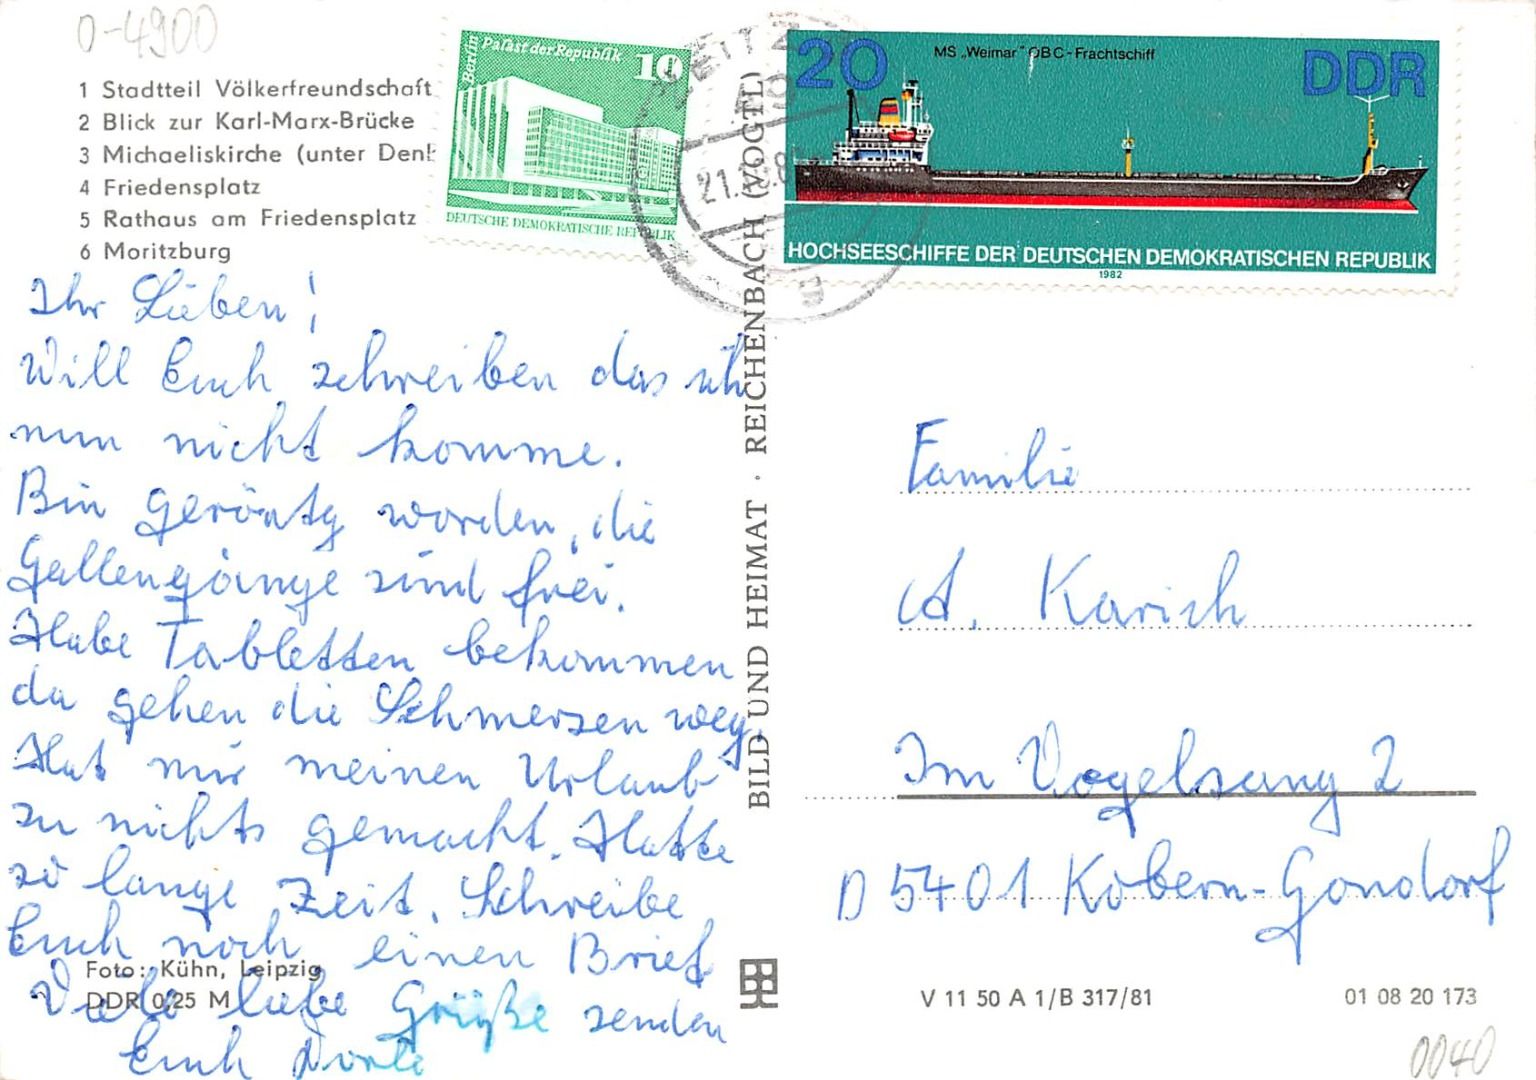 0-4900
1 Stadtteil Völkerfreundschaft
2 Blick zur Karl-Marx-Brücke
3 Michaeliskirche (unter Denk
4 Friedensplatz
5 Rathaus am Friedensplatz
6 Moritzburg
Berlin
Palast der Republik
10
DEUTSCHE DEMOKRATISCHE REPUBLIK
ZEITZ
20
MS „Weimar" OBC-Frachtschiff
DDR
HOCHSEESCHIFFE DER DEUTSCHEN DEMOKRATISCHEN REPUBLIK
1982
Ihr Lieben!
Will Euch schreiben das ich
nun nicht komme.
Bin geröntg worden, die
Gallengänge sind frei.
Habe Tabletten bekommen
da gehen die Schmerzen weg.
Hat mir meinen Urlaub
zu nichts gemacht. Hatte
so lange Zeit. Schreibe
Euch noch einen Brief
Viele liebe Grüße senden
Euch Dorle
Foto: Kühn, Leipzig
DDR 0,25 M
BILD UND HEIMAT · REICHENBACH (VOGTL)
Familie
A. Karich
Im Vogelsang 2
D 5401 Kobern-Gondorf
V 11 50 A 1/B 317/81
01 08 20 173
0040